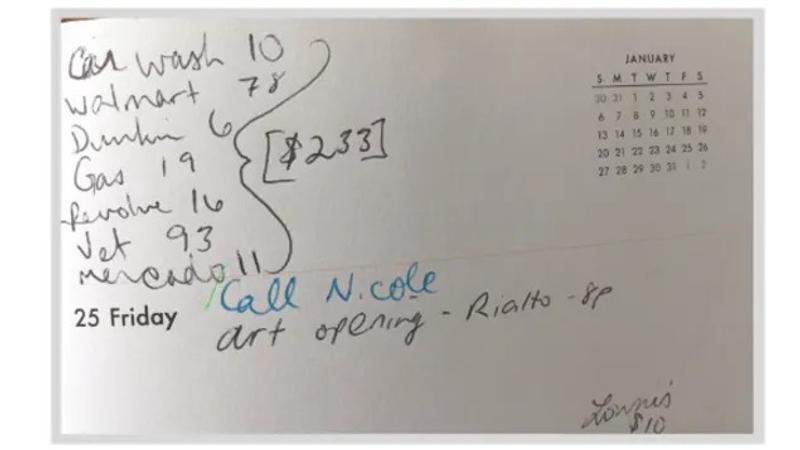 Car wash 10
walmart 78
Dunkin 6
Gas 19
Revolve 16
Vet 93
mercado 11
[$233]
JANUARY
S M T W T F S
30 31 1 2 3 4 5
6 7 8 9 10 11 12
13 14 15 16 17 18 19
20 21 22 23 24 25 26
27 28 29 30 31 1 2
Call Nicole
25 Friday
art opening - Rialto - 8p
$10